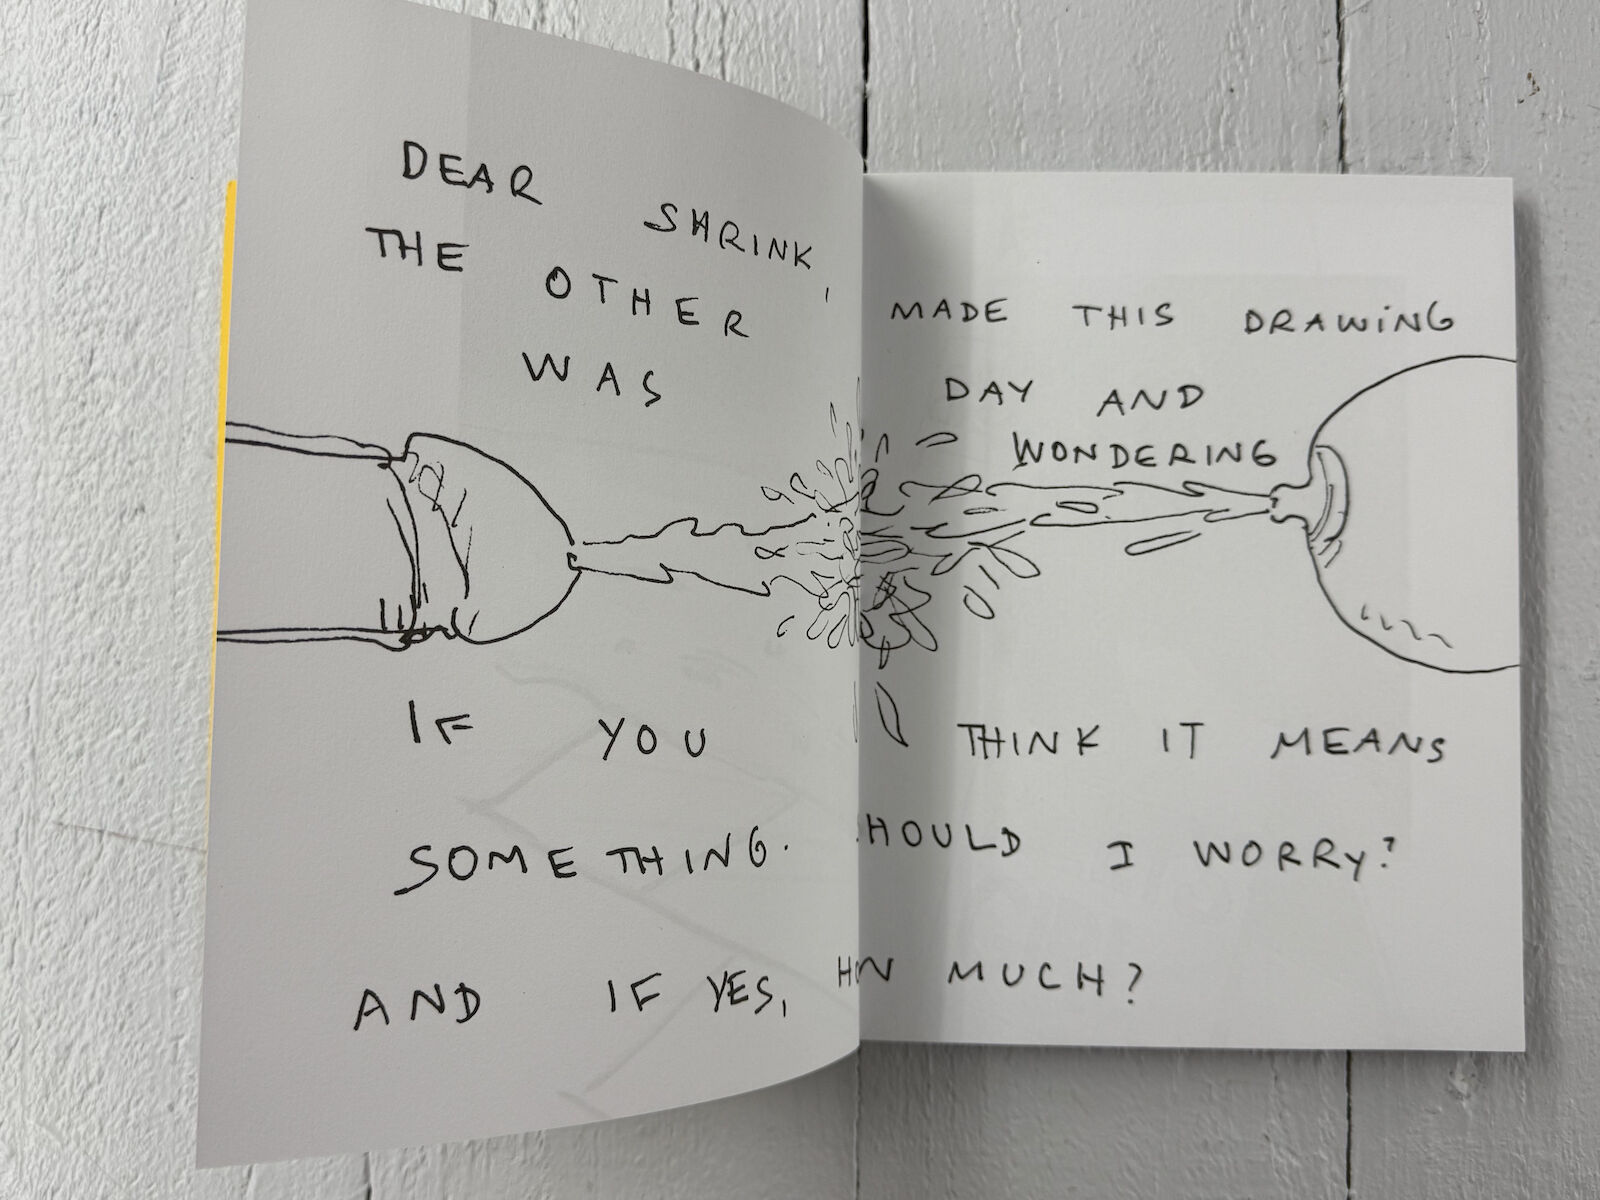 DEAR SHRINK, I MADE THIS DRAWING
THE OTHER DAY AND
WAS WONDERING
IF YOU THINK IT MEANS
SOMETHING. SHOULD I WORRY?
AND IF YES, HOW MUCH?